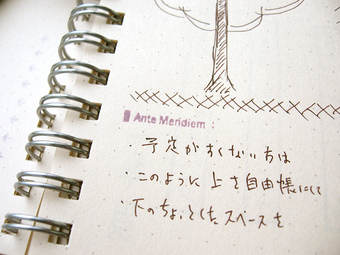 Ante Meridiem :
・予定がすくない方は
・このように上を自由帳にして
・下のちょっとしたスペースを